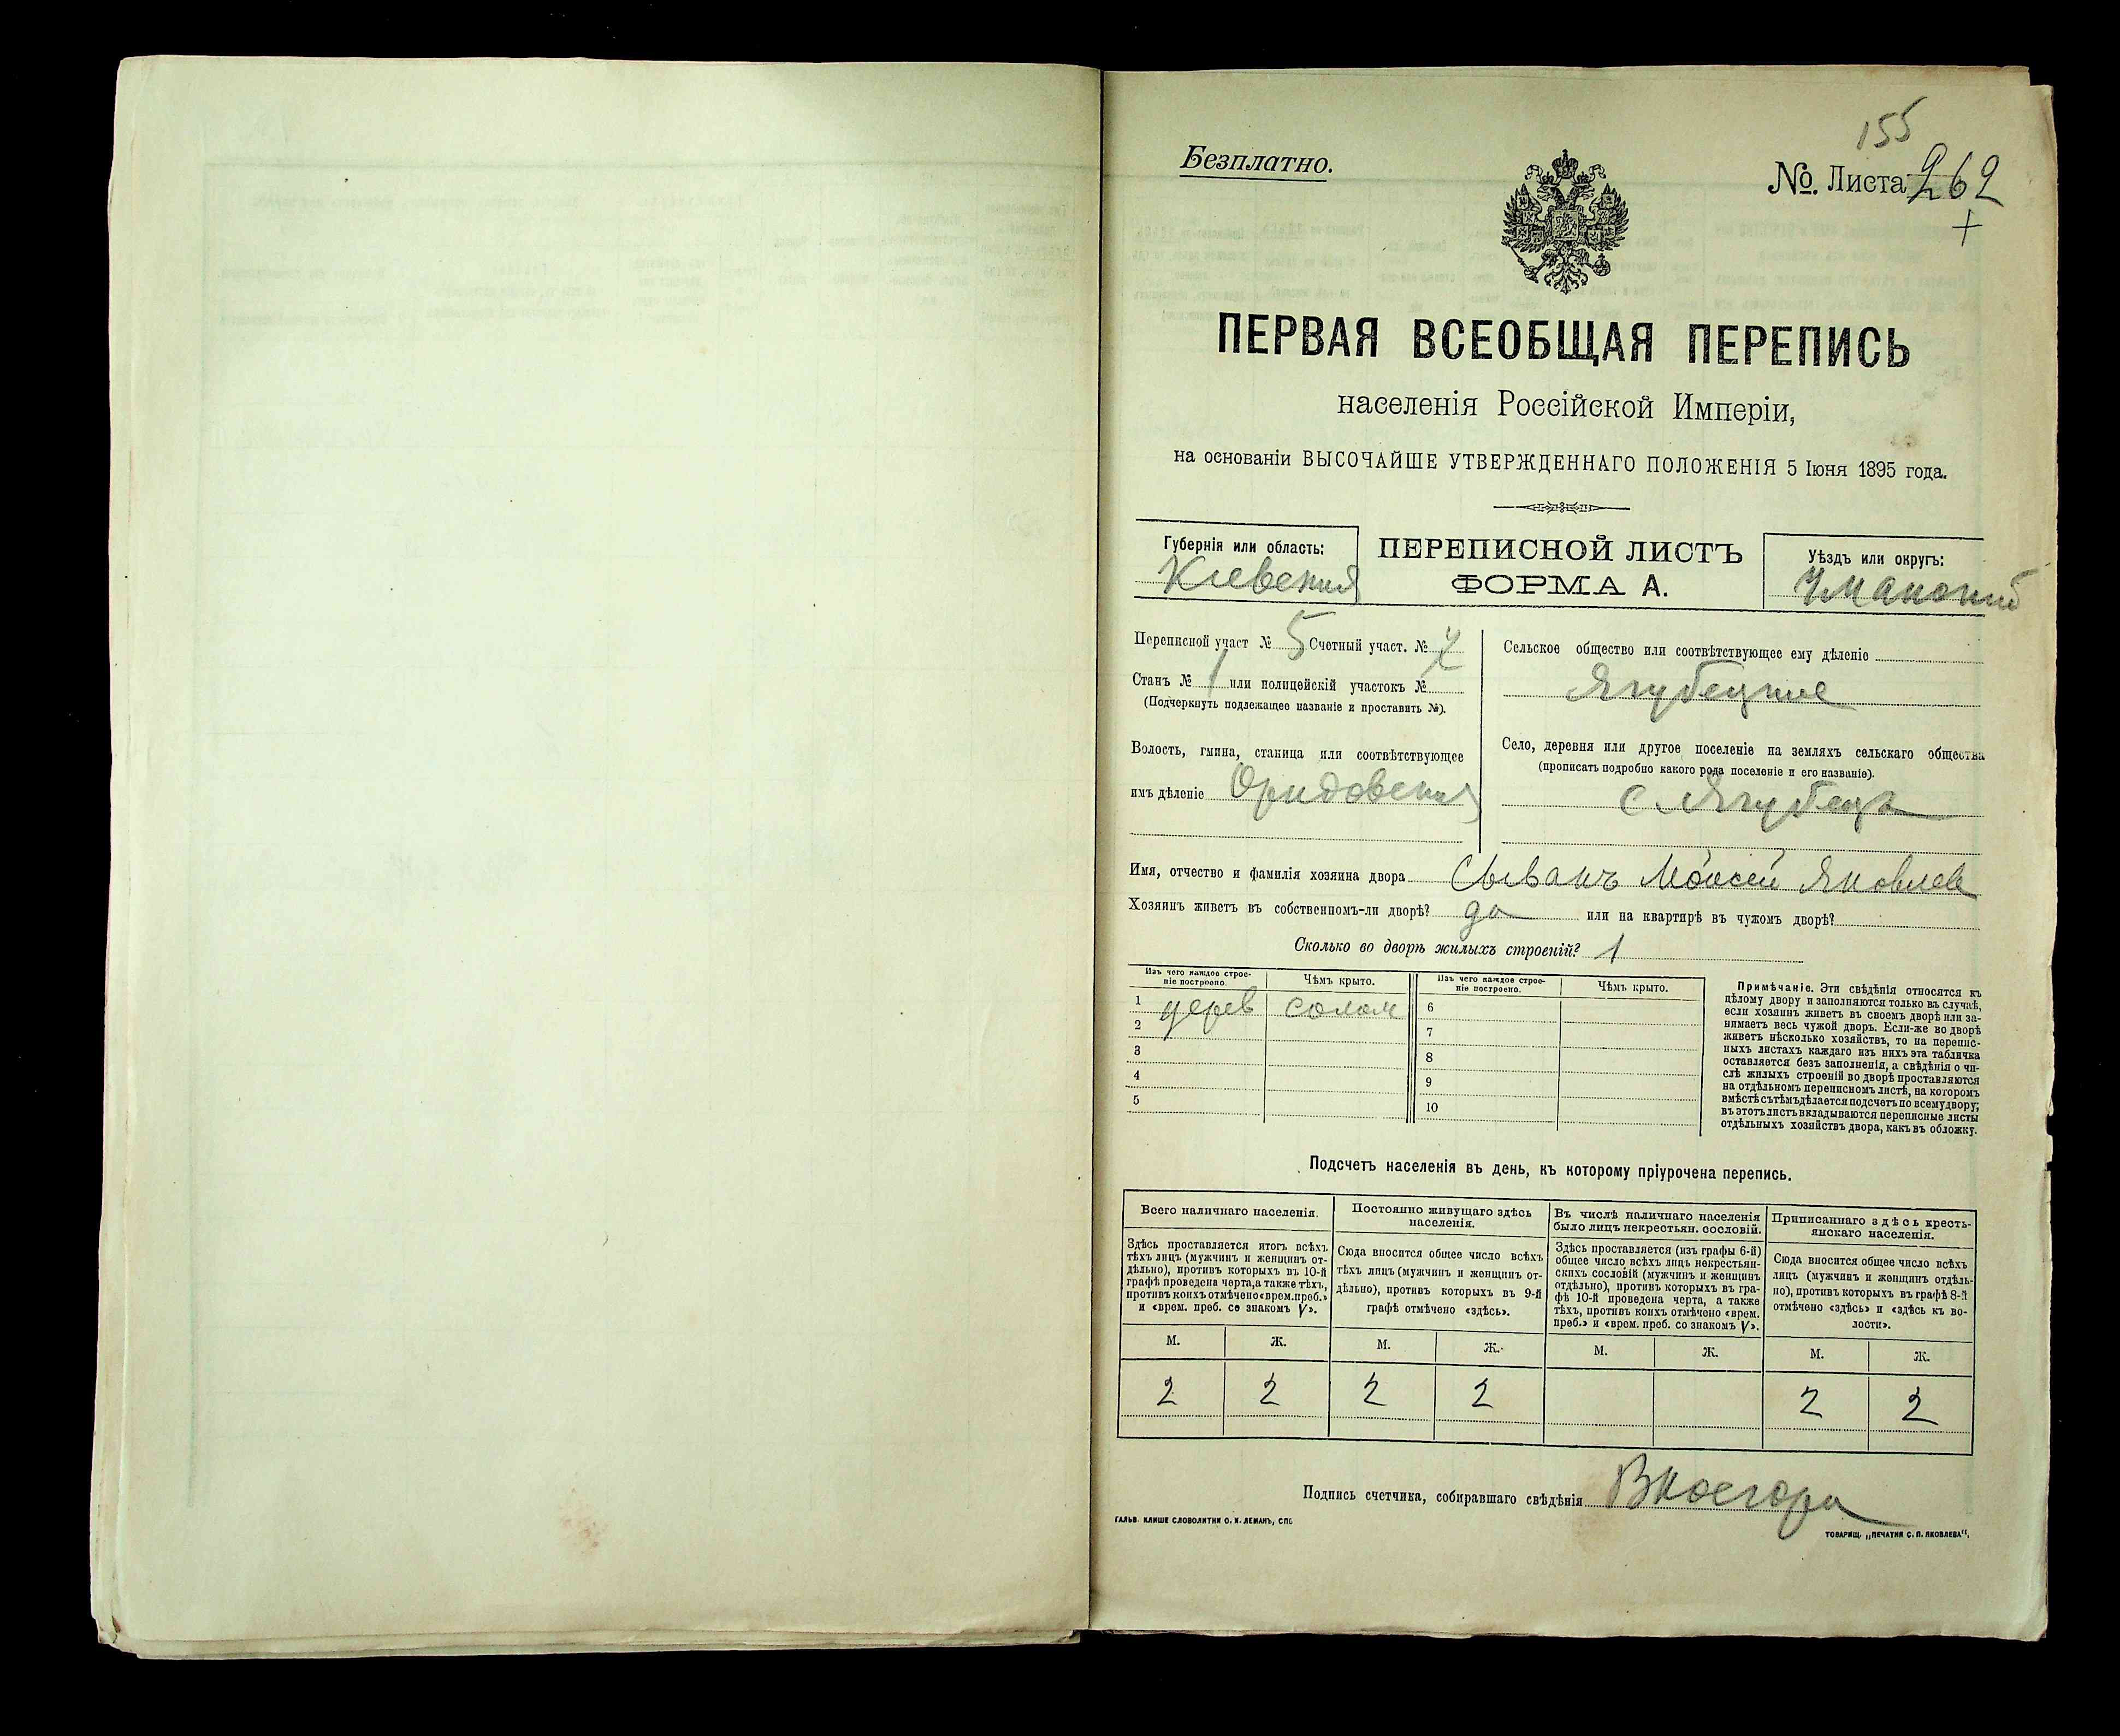 155
Безплатно.
№. Листа 262
+
ПЕРВАЯ ВСЕОБЩАЯ ПЕРЕПИСЬ
населенія Россійской Имперіи,
на основаніи ВЫСОЧАЙШЕ УТВЕРЖДЕННАГО ПОЛОЖЕНІЯ 5 Іюня 1895 года.
Губернія или область:
Кіевская
ПЕРЕПИСНОЙ ЛИСТЪ
ФОРМА А.
Уѣздъ или округъ:
Уманскій
Переписной участ № 5 Счетный участ. №
Станъ № 1 или полицейскій участокъ №
(Подчеркнуть подлежащее названіе и проставить №).
Волость, гмина, станица или соотвѣтствующее
имъ дѣленіе
Сельское общество или соотвѣтствующее ему дѣленіе
Ягубецкое
Село, деревня или другое поселеніе на земляхъ сельскаго общества
(прописать подробно какого рода поселеніе и его названіе).
с Ягубецъ
Имя, отчество и фамилія хозяина двора Сыванъ Моисей Яковлев
Хозяинъ живетъ въ собственномъ-ли дворѣ? да или на квартирѣ въ чужомъ дворѣ?
Сколько во дворѣ жилыхъ строеній? 1
Изъ чего каждое строеніе построено. Чѣмъ крыто. Изъ чего каждое строеніе построено. Чѣмъ крыто.
1 дерев солом 6
2 7
3 8
4 9
5 10
Примѣчаніе. Эти свѣдѣнія относятся къ
цѣлому двору и заполняются только въ случаѣ,
если хозяинъ живетъ въ своемъ дворѣ или за-
нимаетъ весь чужой дворъ. Если-же во дворѣ
живетъ нѣсколько хозяйствъ, то на перепис-
ныхъ листахъ каждаго изъ нихъ эта табличка
оставляется безъ заполненія, а свѣдѣнія о чи-
слѣ жилыхъ строеній во дворѣ проставляются
на отдѣльномъ переписномъ листѣ, на которомъ
вмѣстѣ съ тѣмъ дѣлается подсчетъ по всему двору;
въ этотъ листъ вкладываются переписные листы
отдѣльныхъ хозяйствъ двора, какъ въ обложку.
Подсчетъ населенія въ день, къ которому пріурочена перепись.
Всего наличнаго населенія.
Здѣсь проставляется итогъ всѣхъ
тѣхъ лицъ (мужчинъ и женщинъ от-
дѣльно), противъ которыхъ въ 10-й
графѣ проведена черта, а также тѣхъ,
противъ коихъ отмѣчено «врем. преб.»
и «врем. преб. со знакомъ V».
Постоянно живущаго здѣсь
населенія.
Сюда вносится общее число всѣхъ
тѣхъ лицъ (мужчинъ и женщинъ от-
дѣльно), противъ которыхъ въ 9-й
графѣ отмѣчено «здѣсь».
Въ числѣ наличнаго населенія
было лицъ некрестьян. сословій.
Здѣсь проставляется (изъ графы 6-й)
общее число всѣхъ лицъ некрестьян-
скихъ сословій (мужчинъ и женщинъ
отдѣльно), противъ которыхъ въ гра-
фѣ 10-й проведена черта, а также
тѣхъ, противъ коихъ отмѣчено «врем.
преб.» и «врем. преб. со знакомъ V».
Приписаннаго здѣсь кресть-
янскаго населенія.
Сюда вносится общее число всѣхъ
лицъ (мужчинъ и женщинъ отдѣль-
но), противъ которыхъ въ графѣ 8-й
отмѣчено «здѣсь» и «здѣсь къ во-
лости».
М. Ж. М. Ж. М. Ж. М. Ж.
2 2 2 2 2 2
Подпись счетчика, собиравшаго свѣдѣнія
ГАЛЬВ. КЛИШЕ СЛОВОЛИТНИ О. И. ЛЕМАНЪ, СПБ
ТОВАРИЩ. „ПЕЧАТНЯ С. П. ЯКОВЛЕВА".